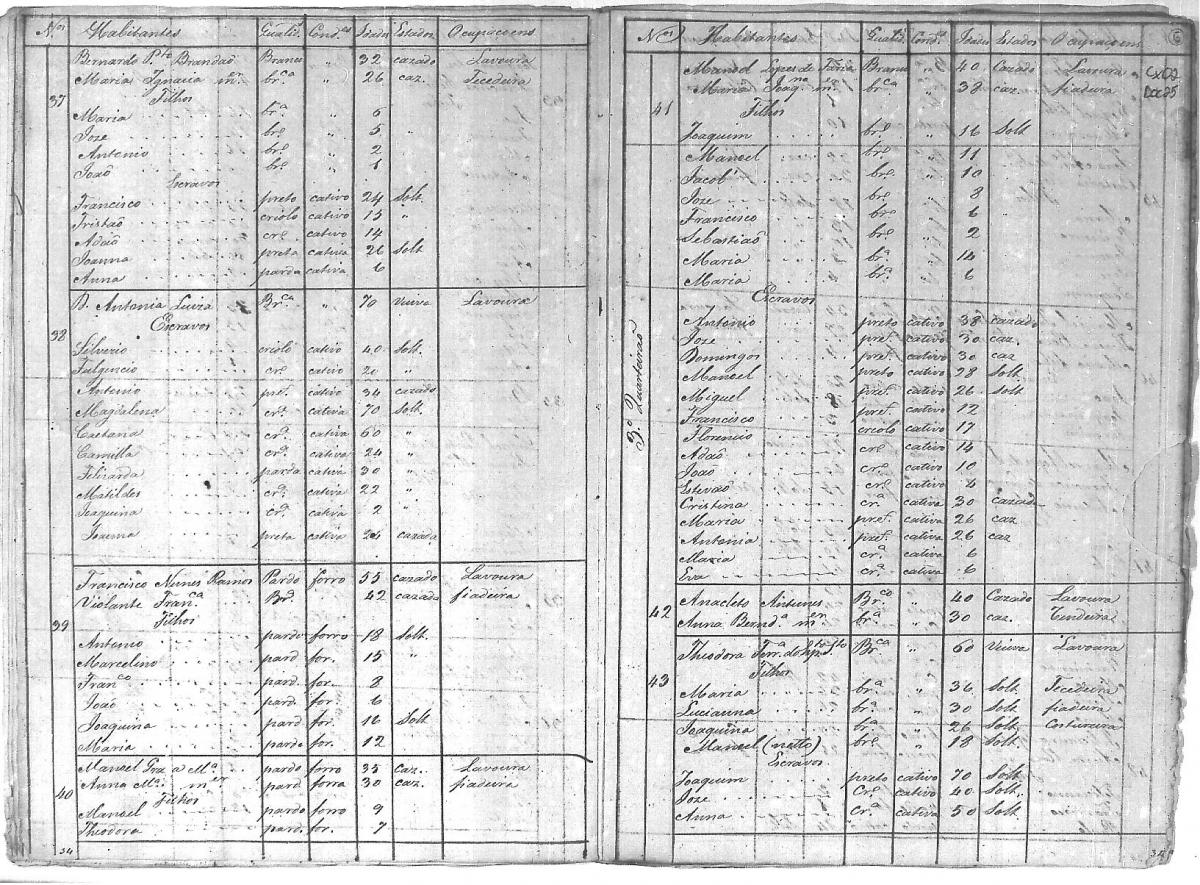 Nos Habitantes Qualid. Condes Idades Estados Ocupaçoens
Bernardo Pto Brandaõ Branco " 32 cazado Lavoura
Maria Ignacia mer. brca " 26 caz. Tecedeira
37 Filhos
Maria bra. " 6
Joze bro. " 5
Antonio bro. " 2
Joaõ bro. " 1
Escravos
Francisco preto cativo 24 Solt.
Tristaõ criolo cativo 15 "
Adaõ cro. cativo 14
Joanna preta cativa 26 Solt.
Anna parda cativa 6
38 D. Antonia Luiza Brca " 70 Viuva Lavoura
Escravos
Silverio criolo cativo 40 Solt.
Fulgencio cro. cativo 20 "
Antonio pret. cativo 34 cazado
Magdalena cra. cativa 70 Solt.
Caetana cra. cativa 60 "
Camilla cra. cativa 24 "
Felizarda parda cativa 30 "
Matildes cra. cativa 22 "
Joaquina cra. cativa 2 "
Joanna preta cativa 24 cazada
39 Francisco Nunes Ramos Pardo forro 55 cazado Lavoura
Violante Franca. 42 cazada fiadeira
Filhos
Antonio pardo forro 18 Solt.
Marcelino pard. for. 15 "
Franco pard. for. 8
Joaõ pard. for. 6
Joaquina pard. for. 16 Solt
Maria pardo for. 12
40 Manoel pardo forro 35 Caz. Lavoura
Anna Ma. mer pard forra 30 caz. fiadeira
Filhos
Manoel pardo forro 9
Theodora pard. for. 7
34
Nos Habitantes Qualid. Conda. Idades Estados Ocupaçoens 6
Cx 07
Doc 25
41 Manoel Lopes de Faria Branco " 40 Cazado Lavoura
Maria Joaqna mer. brca " 38 caz. fiadeira
Filhos
Joaquim bro. " 16 Solt
Manoel bro. " 11
Jacob bro. " 10
Joze bro. " 8
Francisco bro. " 6
Sebastiaõ bro. " 2
Maria bra. " 14
Maria bra. " 6
Escravos
3º Quarteiraõ
Antonio preto cativo 38 cazado
Joze pret. cativo 30 caz.
Domingos pret. cativo 30 caz
Manoel preto cativo 28 Solt
Miguel pret. cativo 26 Solt
Francisco pret. cativo 12
Florencio criolo cativo 17
Adaõ cro. cativo 14
Joaõ cro. cativo 10
Estevaõ cro. cativo 4
Cristina cra. cativa 30 cazada
Maria pret. cativa 26 caz
Antonia pret. cativa 26 caz
Maria cra. cativa 6
Eva cra. cativa 6
42 Anacleto Antunes Brco " 40 Cazado Lavoura
Anna Bernda. mer bra " 30 caz. Tendeira
43 Theodora Brca " 60 Viuva Lavoura
Filhos
Maria bra " 36 Solt Tecedeira
Lucianna bra " 30 Solt fiadeira
Joaquina bra " 26 Solt Costureira
Manoel (netto) bro " 18 Solt
Escravos
Joaquim preto cativo 70 Solt
Joze Cro. cativo 40 Solt.
Anna Cra. cativa 50 Solt